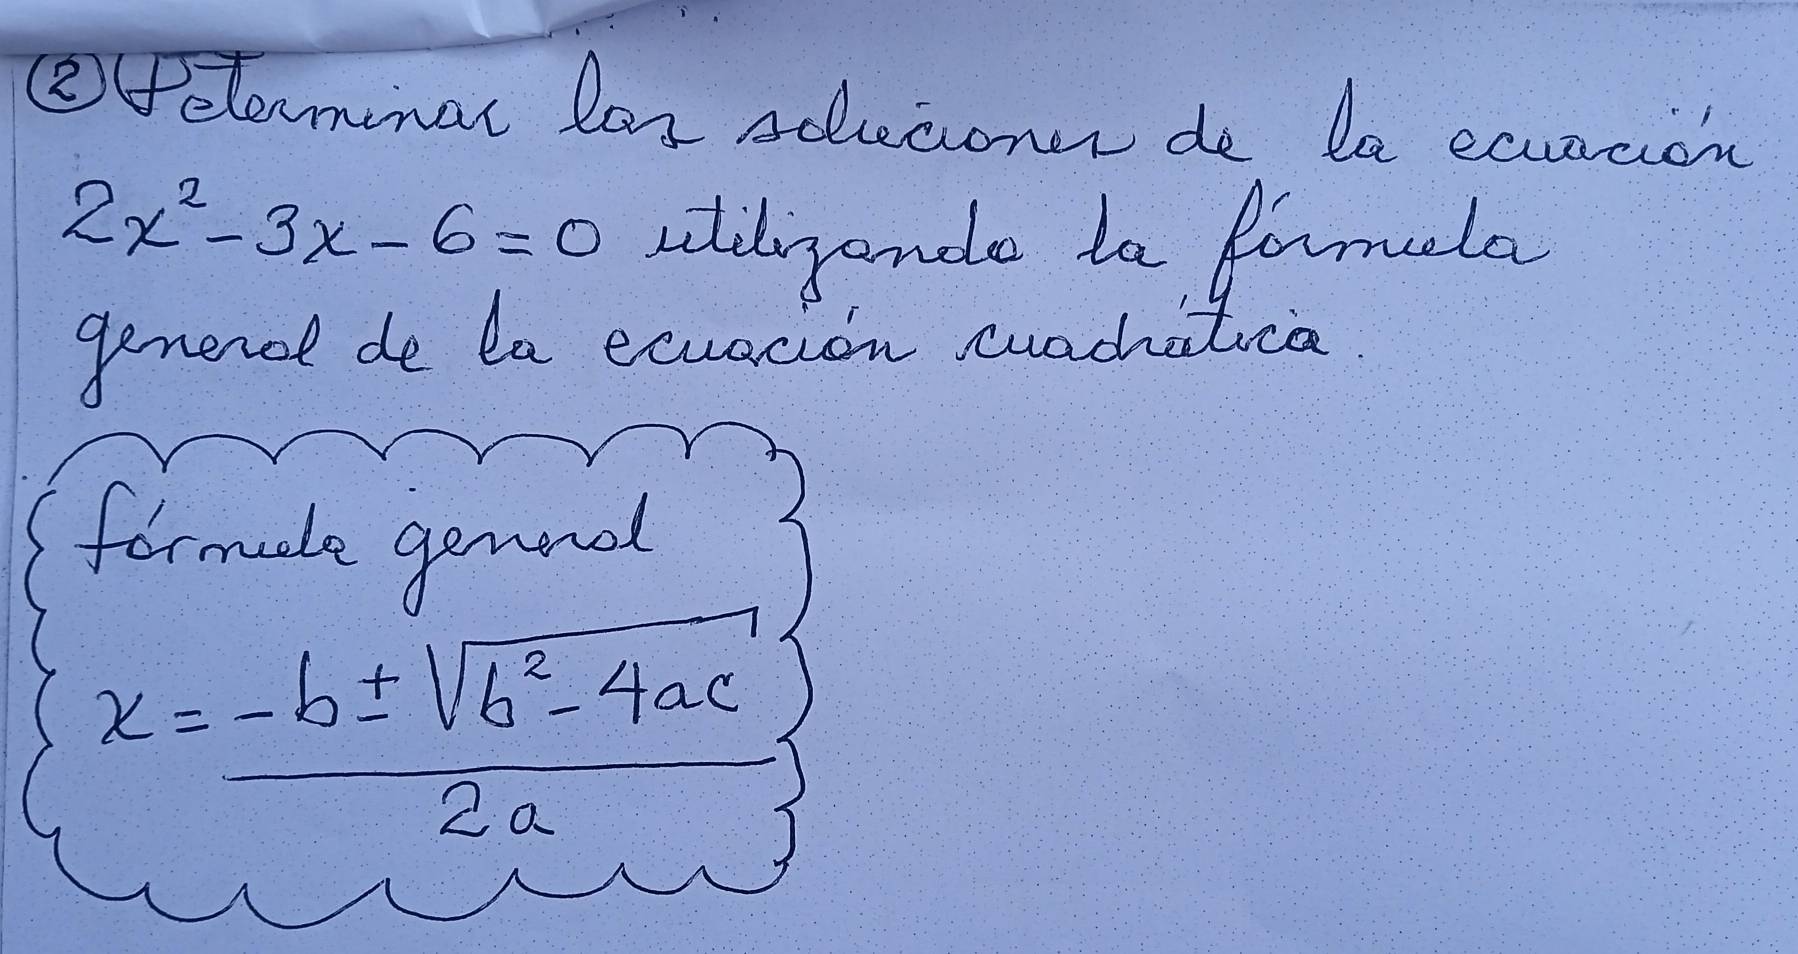 ② Determinar las soluciones de la ecuación
2x² - 3x - 6 = 0 utilizando la fórmula
general de la ecuación cuadrática.
fórmula general
x = -b ± √b² - 4ac
2a